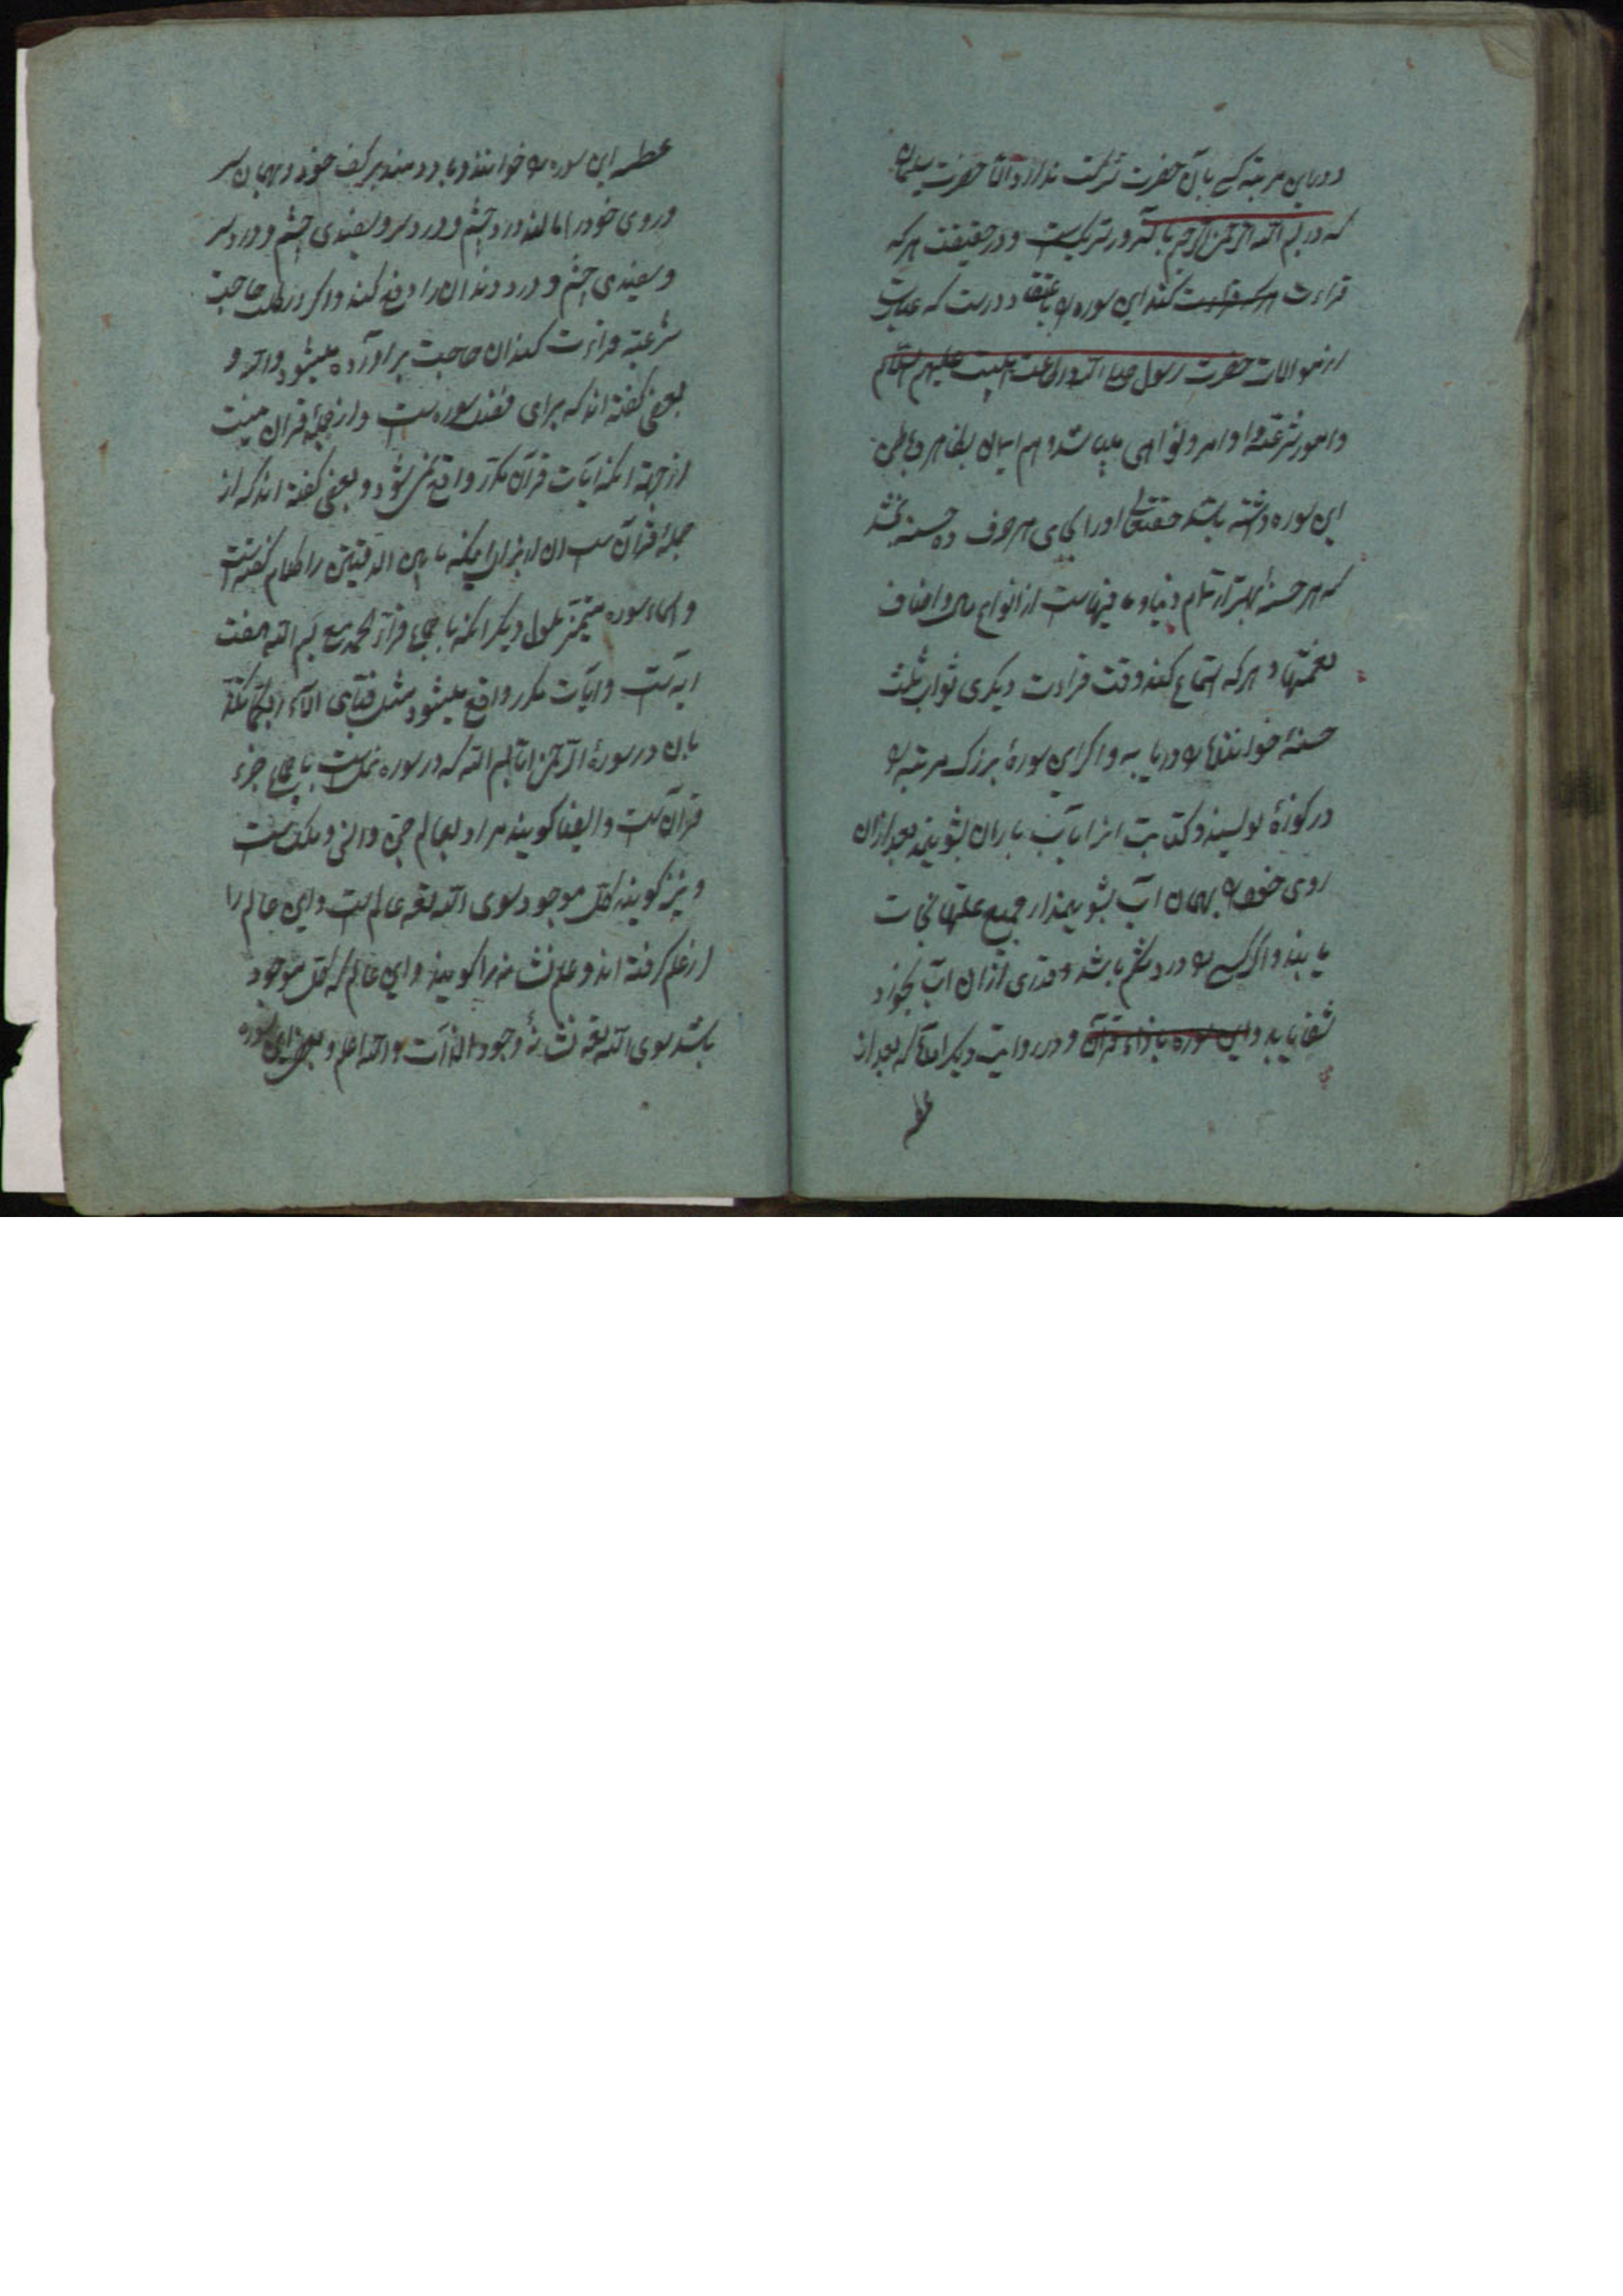 و در این مرتبه کسی بآن حضرت شرکت ندارد و الا حضرت سلیمان
که در بسم الله الرحمن الرحیم با آنسرور شریکست و در حقیقت هر که
قراءت کند این سوره را باعتقاد درست که عبارت
از موالات حضرت رسول صلی الله و اهلبیت علیهم السلام
و امور شرعیه و اوامر و نواهی میباشد و هم ایمان بظاهر و باطن
این سوره داشته باشد حقتعالی او را بجای هر حرف ده حسنه بخشد
که هر حسنهٔ بهتر از تمام دنیا و ما فیهاست از انواع مال و اصناف
نعمتها و هر که استماع کند وقت قراءت دیگری ثواب ثلث
حسنهٔ خواننده را دریابد و اگر این سورهٔ بزرک مرتبه را
در کوزهٔ نویسند و کتابت انرا بآب باران بشویند بعد از ان
روی خود را بهمان آب بشویند از جمیع علتها نجات
یابند و اگر کسی را درد شکم باشد و قدری از ان آب بخورد
شفا یابد و این سوره بازاء قرآن و در روایت دیگر آمده که بعد از
عطسه
عطسه این سوره را خوانند و باد دمند بر کف خود و بهمان سر
و روی خود را مالند درد چشم و درد سر و سفیدی چشم و درد سر
و سفیدی چشم و درد دندان را دفع کند و اگر در طلب حاجت
شرعیه قراءت کند ان حاجت براورده میشود و
بعضی گفته اند که برای قصد سوره است و از جمله قران نیست
از جهة انکه آیات قرآن مکرر واقع نمیشود و بعضی گفته اند که از
جملهٔ قرآن است از برای اینکه ما بین الدفتین را کلام گفته است
و اسماء سوره دیگر انکه باجماع قراء الحمد مع بسم الله هفت
ایه است و آیات مکرر واقع میشود مثل فبای الآء ربکما تکذ
بان در سورهٔ الرحمن اما بسم الله که در سوره نمل است باجماع جزء
قرآن است و ایضا گویند مراد بعالم جن و انس و ملک است
و نیز گویند کل موجود سوی الله تعه عالم است و این عالم را
از علم گرفته اند و علم نشانه را گویند و این عالم که کل موجود
باشد سوی الله تعه نشانهٔ وجود الذات والله اعلم و این سوره